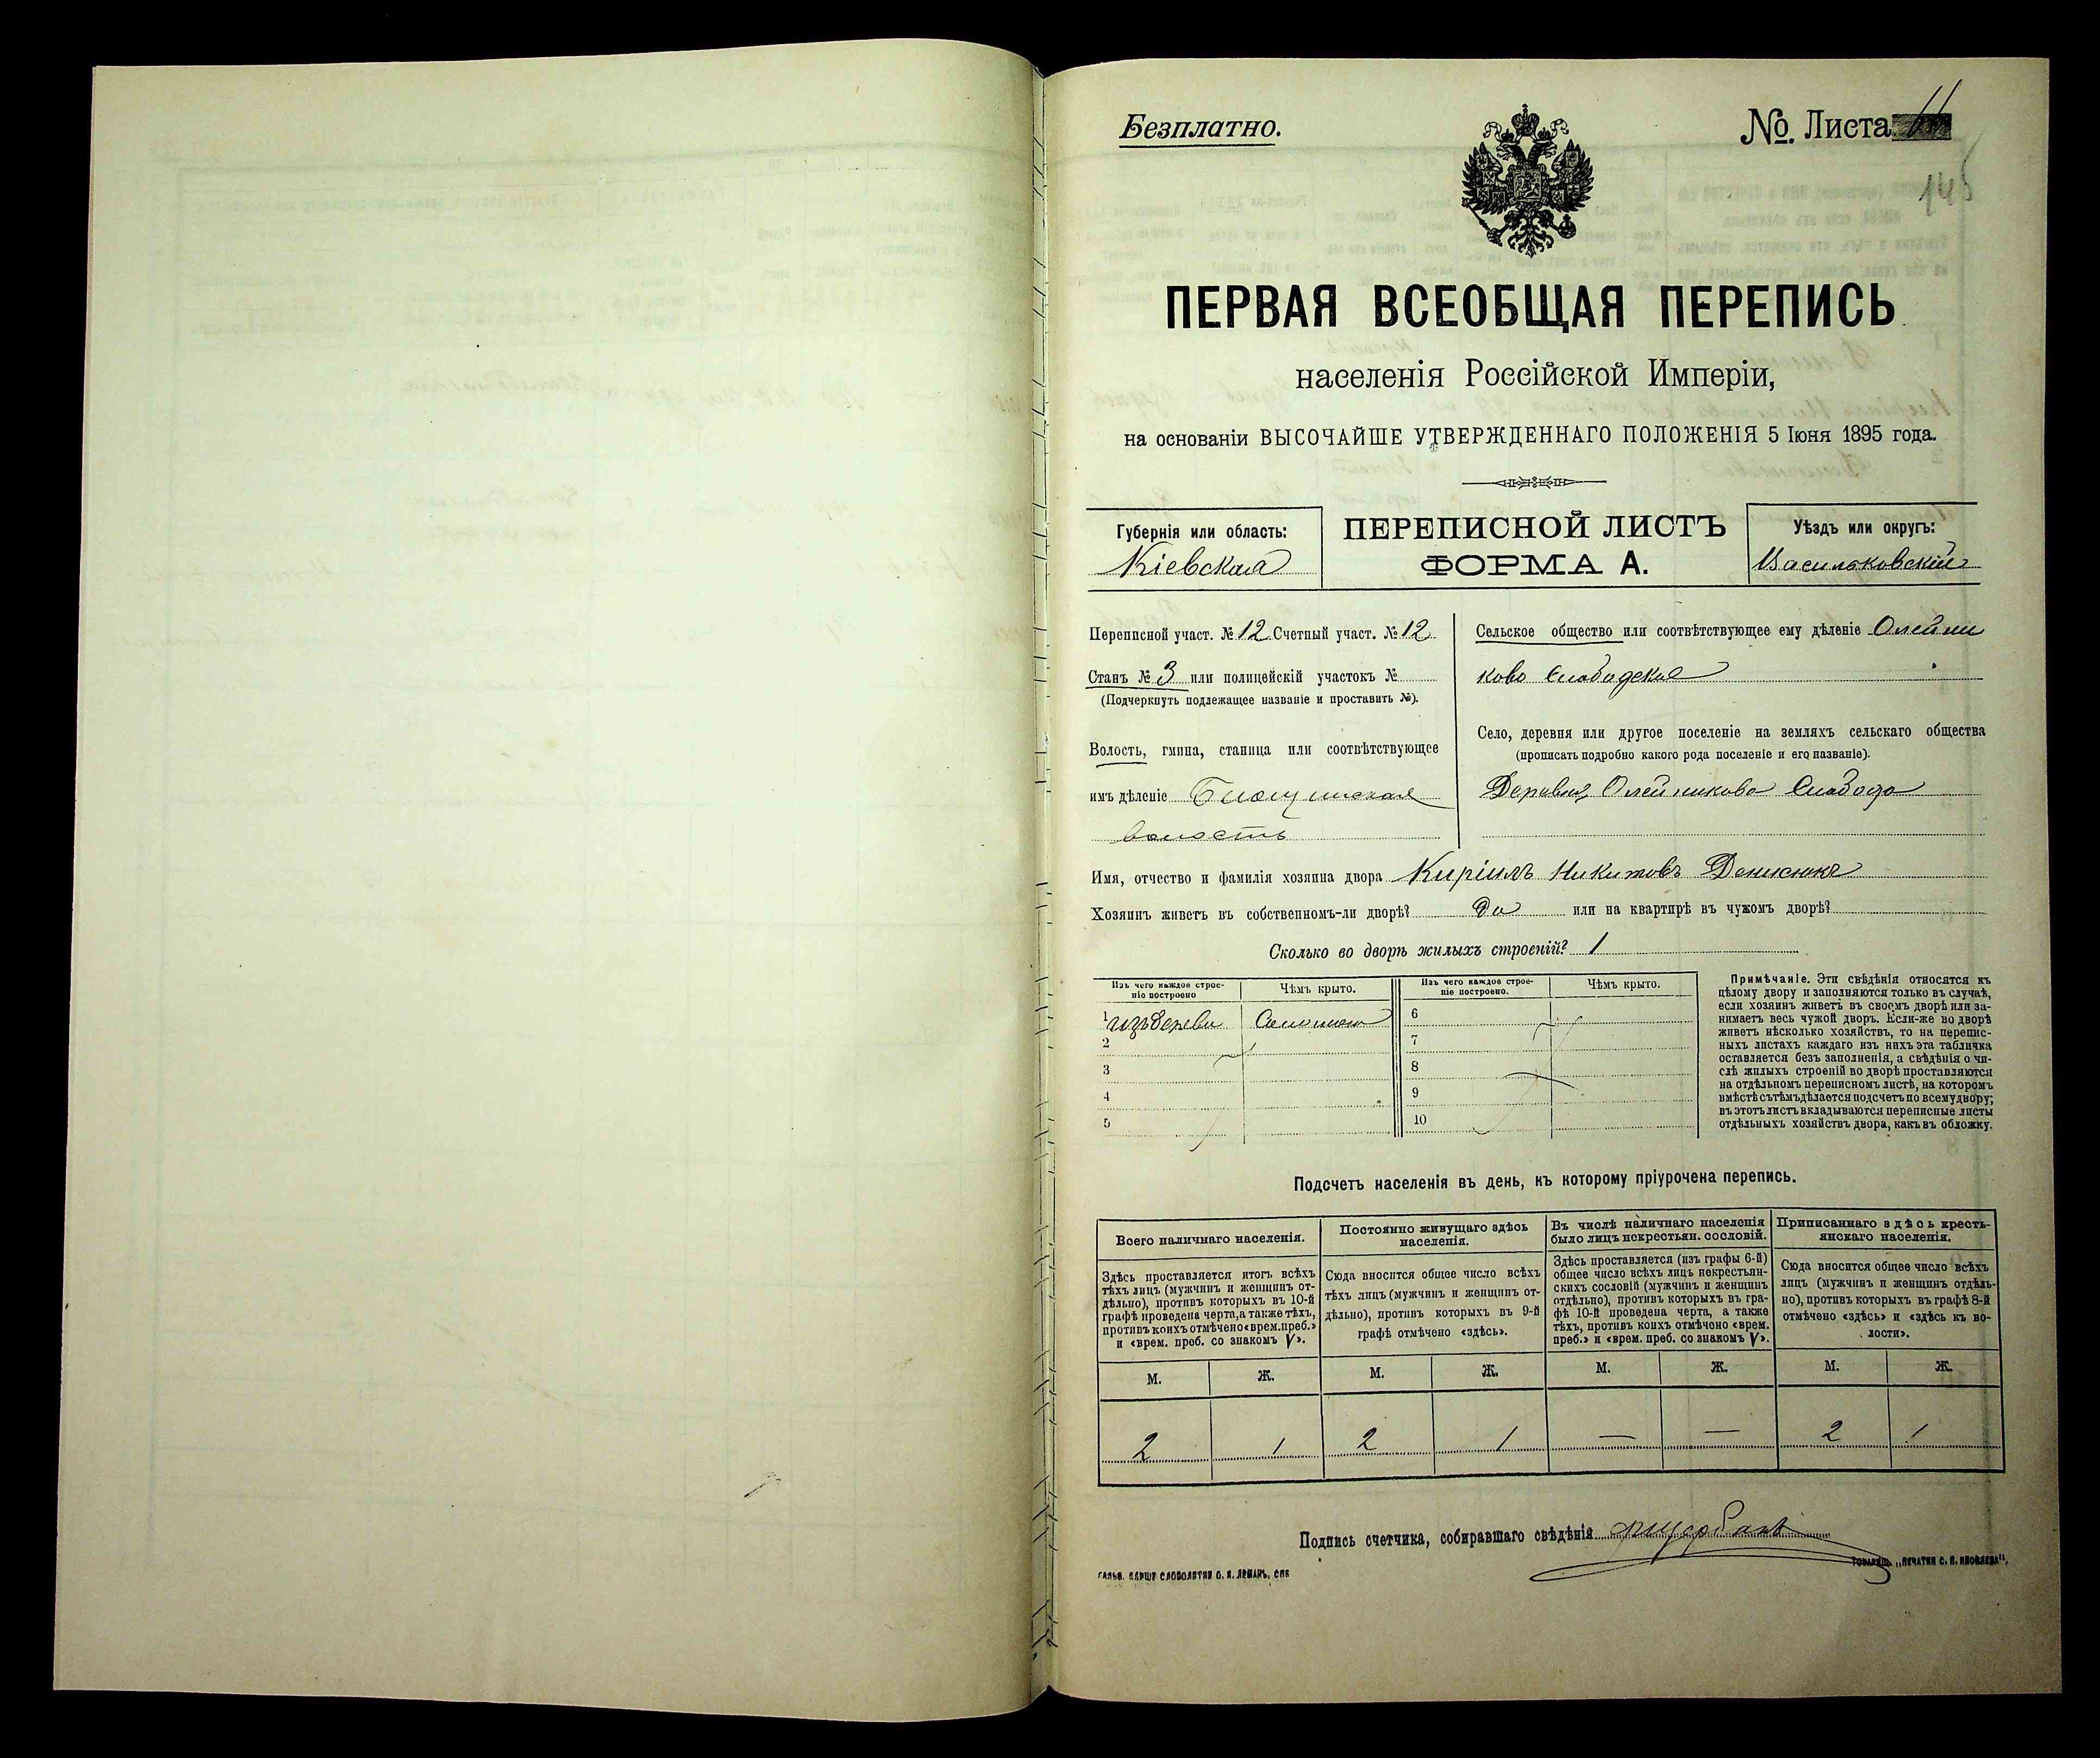 Безплатно.
№. Листа
145
ПЕРВАЯ ВСЕОБЩАЯ ПЕРЕПИСЬ
населенія Россійской Имперіи,
на основаніи ВЫСОЧАЙШЕ УТВЕРЖДЕННАГО ПОЛОЖЕНІЯ 5 Іюня 1895 года.
Губернія или область:
Кіевская
ПЕРЕПИСНОЙ ЛИСТЪ
ФОРМА А.
Уѣздъ или округъ:
Васильковскій
Переписной участ. № 12 Счетный участ. № 12
Станъ № 3 или полицейскій участокъ №
(Подчеркнуть подлежащее названіе и проставить №).
Волость, гмина, станица или соотвѣтствующее
имъ дѣленіе
волость
Сельское общество или соотвѣтствующее ему дѣленіе Олейни
ково Слободское
Село, деревня или другое поселеніе на земляхъ сельскаго общества
(прописать подробно какого рода поселеніе и его названіе).
Деревня Олейникова Слобода
Имя, отчество и фамилія хозяина двора Киріилъ Никитовъ Денисюкъ
Хозяинъ живетъ въ собственномъ-ли дворѣ? Да или на квартирѣ въ чужомъ дворѣ?
Сколько во дворѣ жилыхъ строеній? 1
Изъ чего каждое строе-
ніе построено
Чѣмъ крыто.
Изъ чего каждое строе-
ніе построено.
Чѣмъ крыто.
1 изъ дерева Соломою
2
3
4
5
6
7
8
9
10
Примѣчаніе. Эти свѣдѣнія относятся къ
цѣлому двору и заполняются только въ случаѣ,
если хозяинъ живетъ въ своемъ дворѣ или за-
нимаетъ весь чужой дворъ. Если-же во дворѣ
живетъ нѣсколько хозяйствъ, то на перепис-
ныхъ листахъ каждаго изъ нихъ эта табличка
оставляется безъ заполненія, а свѣдѣнія о чи-
слѣ жилыхъ строеній во дворѣ проставляются
на отдѣльномъ переписномъ листѣ, на которомъ
вмѣстѣ съ тѣмъ дѣлается подсчетъ по всему двору;
въ этотъ листъ вкладываются переписные листы
отдѣльныхъ хозяйствъ двора, какъ въ обложку.
Подсчетъ населенія въ день, къ которому пріурочена перепись.
Всего наличнаго населенія.
Здѣсь проставляется итогъ всѣхъ
тѣхъ лицъ (мужчинъ и женщинъ от-
дѣльно), противъ которыхъ въ 10-й
графѣ проведена черта, а также тѣхъ,
противъ коихъ отмѣчено «врем. преб.»
и «врем. преб. со знакомъ V».
Постоянно живущаго здѣсь
населенія.
Сюда вносится общее число всѣхъ
тѣхъ лицъ (мужчинъ и женщинъ от-
дѣльно), противъ которыхъ въ 9-й
графѣ отмѣчено «здѣсь».
Въ числѣ наличнаго населенія
было лицъ некрестьян. сословій.
Здѣсь проставляется (изъ графы 6-й)
общее число всѣхъ лицъ некрестьян-
скихъ сословій (мужчинъ и женщинъ
отдѣльно), противъ которыхъ въ гра-
фѣ 10-й проведена черта, а также
тѣхъ, противъ коихъ отмѣчено «врем.
преб.» и «врем. преб. со знакомъ V».
Приписаннаго здѣсь кресть-
янскаго населенія.
Сюда вносится общее число всѣхъ
лицъ (мужчинъ и женщинъ отдѣль-
но), противъ которыхъ въ графѣ 8-й
отмѣчено «здѣсь» и «здѣсь къ во-
лости».
М. Ж. М. Ж. М. Ж. М. Ж.
2 1 2 1 — — 2 1
Подпись счетчика, собиравшаго свѣдѣнія
Товарищ. „Печатня С. П. Яковлева",